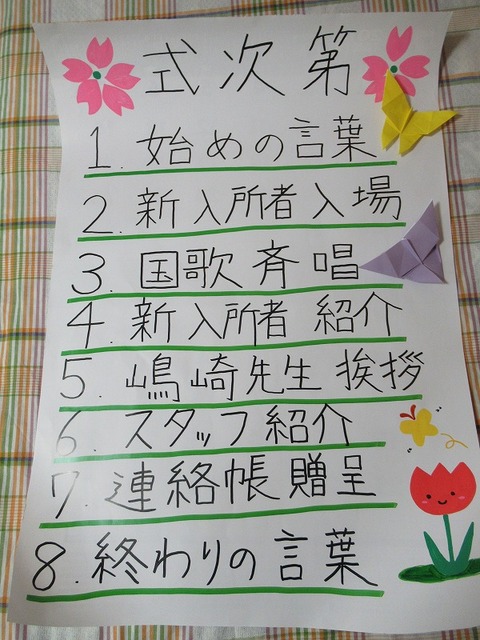 式次第
1. 始めの言葉
2. 新入所者入場
3. 国歌斉唱
4. 新入所者 紹介
5. 嶋崎先生 挨拶
6. スタッフ紹介
7. 連絡帳贈呈
8. 終わりの言葉